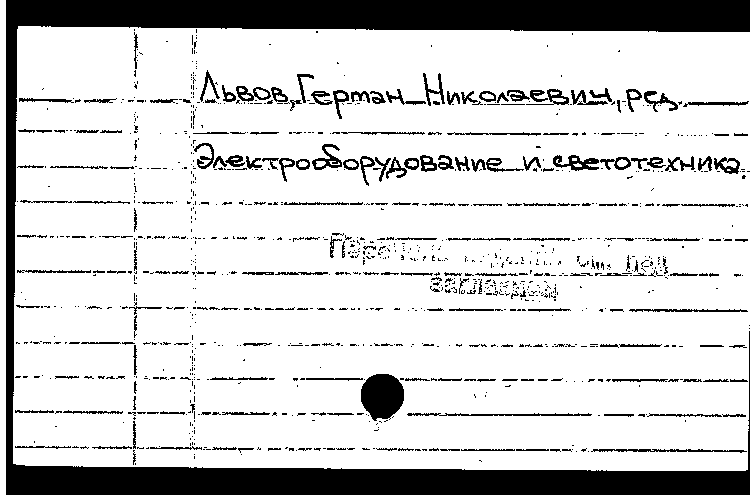 Львов, Герман Николаевич, ред.
Электрооборудование и светотехника.
Перечень изданий см. под
заглавием